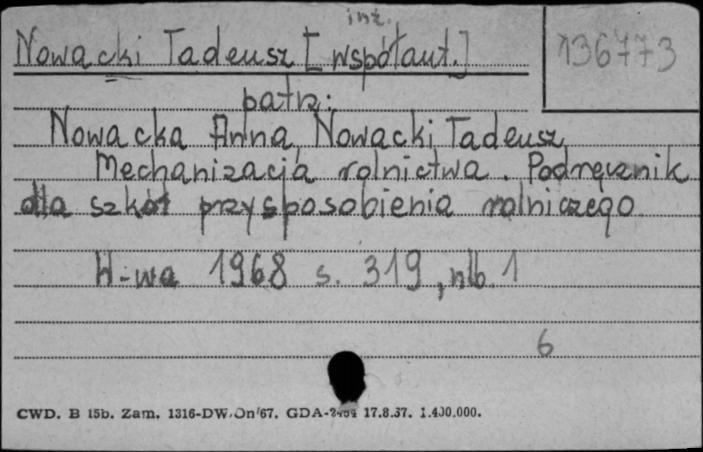 inż.
Nowacki Tadeusz [współaut.]
136773
patrz:
Nowacka Anna, Nowacki Tadeusz
Mechanizacja rolnictwa. Podręcznik
dla szkół przysposobienia rolniczego
W-wa 1968 s. 319, nlb. 1
6
CWD. B 15b. Zam. 1316-DW.On/67. GDA- 17.8.67. 1.400.000.